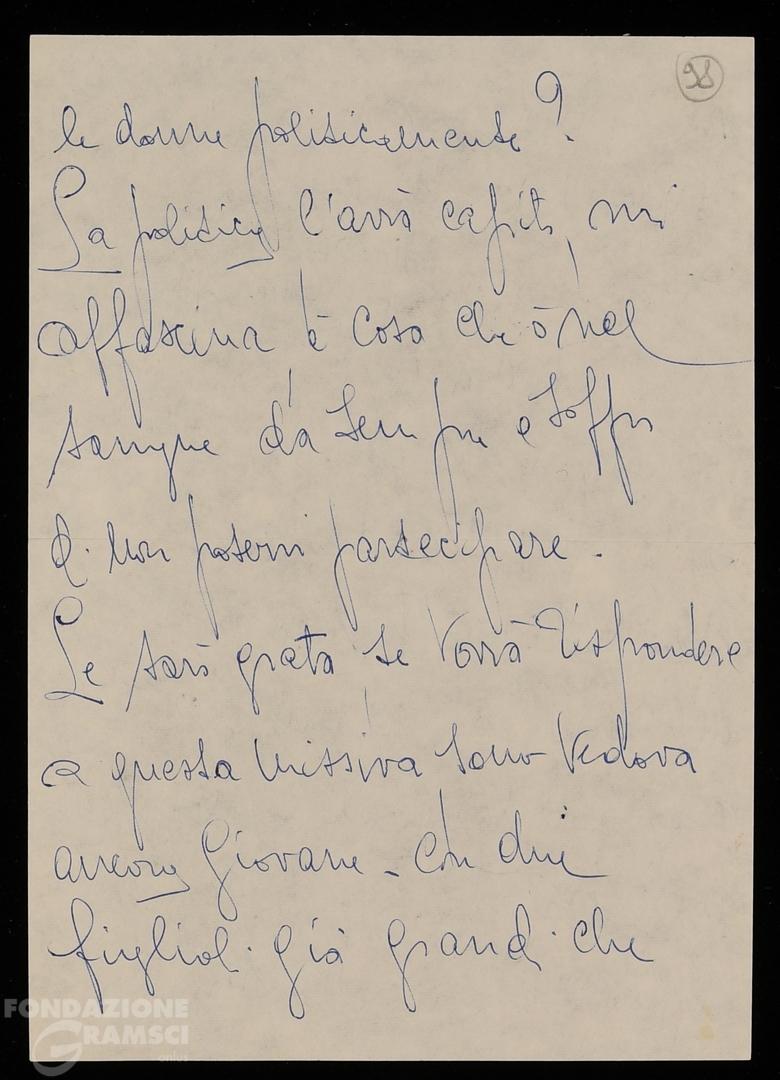 98
le donne politicamente?
La politica l'avrà capito, mi
affascina è cosa che ò nel
sangue da sempre e soffro
di non potervi partecipare.
Le sarò grata se vorrà rispondere
a questa missiva sono vedova
ancora giovane - con due
figlioli già grandi che
FONDAZIONE
GRAMSCI
onlus